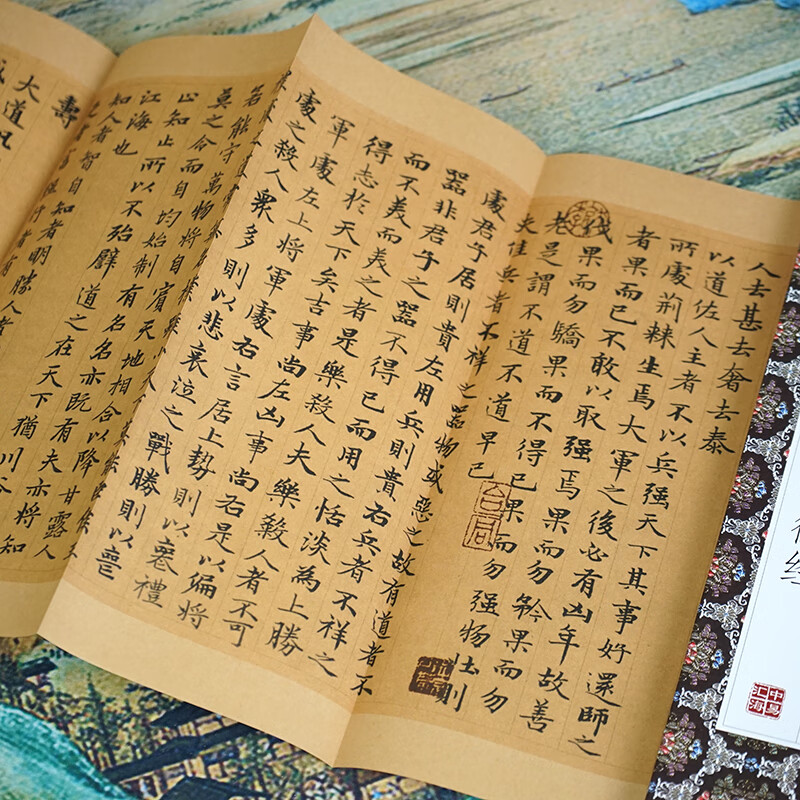 人去甚去奢去泰
以道佐人主者不以兵强天下其事好還師之
所處荊棘生焉大軍之後必有凶年故善
者果而已不敢以取强焉果而勿矜果而勿
伐果而勿驕果而不得已果而勿强物壯則
老是謂不道不道早已
夫佳兵者不祥之器物或惡之故有道者不
處君子居則貴左用兵則貴右兵者不祥之
器非君子之器不得已而用之恬淡為上勝
而不美而美之者是樂殺人夫樂殺人者不可
得志於天下矣吉事尚左凶事尚右是以偏將
軍處左上將軍處右言居上勢則以喪禮
處之殺人眾多則以悲哀泣之戰勝則以喪
若能守萬物將自賓天地相合以降甘露人
莫之令而自均始制有名名亦既有夫亦將知
止知止所以不殆譬道之在天下猶川谷
江海也
知人者智自知者明勝人者
壽
大道
經
中昊汇海